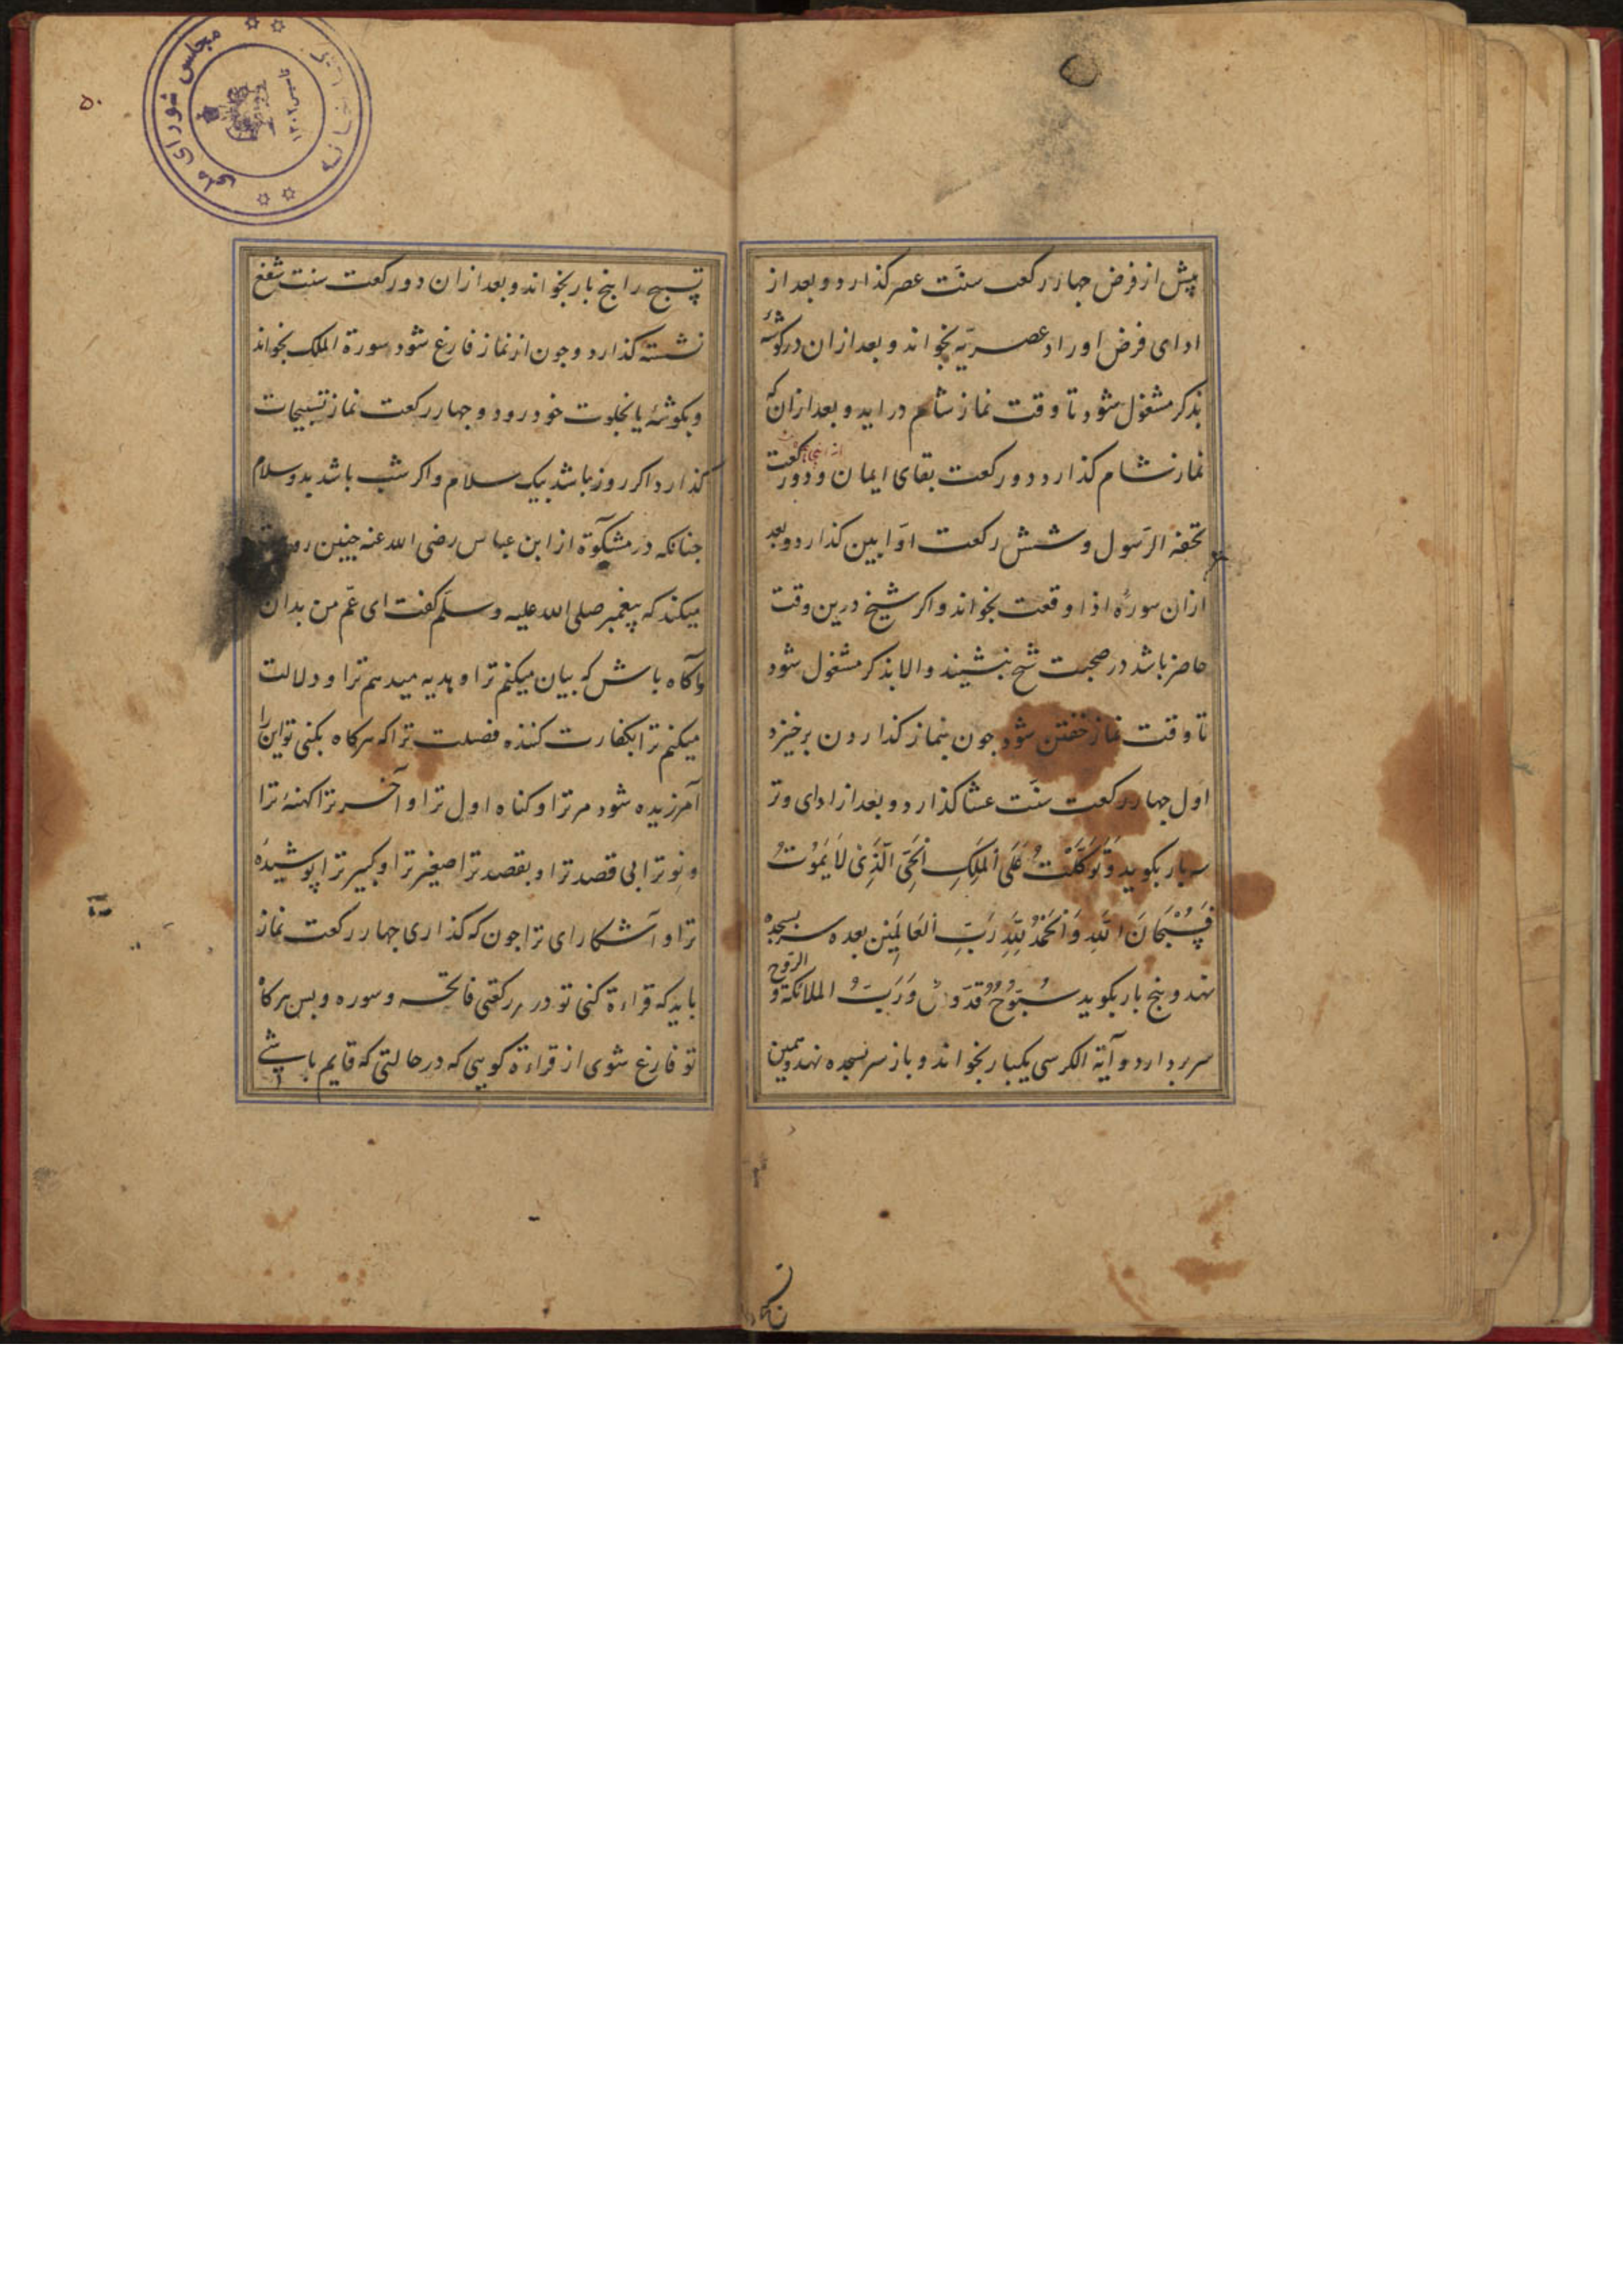 پیش از فرض جهار رکعت سنّت عصر کذارد و بعد از
ادای فرض اوراد عصریّه بخواند و بعد ازان در کوشهٔ
بذکر مشغول شود تا وقت نماز شام دراید و بعد ازان که
نماز شام کذارد دو رکعت بقای ایمان و دو رکعت
تحفه الرّسول و شش رکعت اوّابین کذارد و بعد
ازان سورهٔ اذا وقعت بخواند و اکر شیخ درین وقت
حاضر باشد در صحبت شیخ بنشیند و الا بذکر مشغول شود
تا وقت نماز خفتن شود جون بنماز کذاردن برخیزد
اول جهار رکعت سنّت عشا کذارد و بعد از ادای وتر
سه بار بکوید وَتَوَکَّلْتُ عَلَی الْمَلِكِ الْحَیِّ الَّذِیْ لَا یَمُوْتُ
فَسُبْحَانَ اللّٰهِ وَالْحَمْدُ لِلّٰهِ رَبِّ الْعَالَمِیْن بعده سر بسجده
نهد و پنج بار بکوید سُبُّوْحٌ قُدُّوْسٌ وَرَبُّ الملائکة و الرّوح
سر بردارد و آیة الکرسی یکبار بخواند و باز سر بسجده نهد و همین
۵۰
مجلس شورای ملی
کتابخانه
تسبیح را پنج بار بخواند و بعد ازان دو رکعت سنت شفع
نشسته کذارد و جون از نماز فارغ شود سورة الملك بخواند
و بکوشهٔ یا بخلوت خود رود و جهار رکعت نماز تسبیحات
کذارد اکر روز باشد بیک سلام و اکر شب باشد بدو سلام
جنانکه در مشکوٰة از ابن عباس رضی الله عنه چنین
میکند که پیغمبر صلی الله علیه وسلّم کفت ای عمّ من بدان
و آکاه باش که بیان میکنم ترا و هدیه میدهم ترا و دلالت
میکنم ترا بکفارت کننده فضلت ترا که هرکاه بکنی تو این را
آمرزیده شود مر ترا و کناه اول ترا و آخر ترا کهنهٔ ترا
و نو ترا بی قصد ترا و بقصد ترا صغیر ترا و کبیر ترا پوشیده
ترا و آشکارای ترا جون که کذاری جهار رکعت نماز
باید که قراءة کنی تو در هر رکعتی فاتحه و سوره و بس هرکاه
تو فارغ شوی از قراءة کویی که در حالتی که قایم باشی